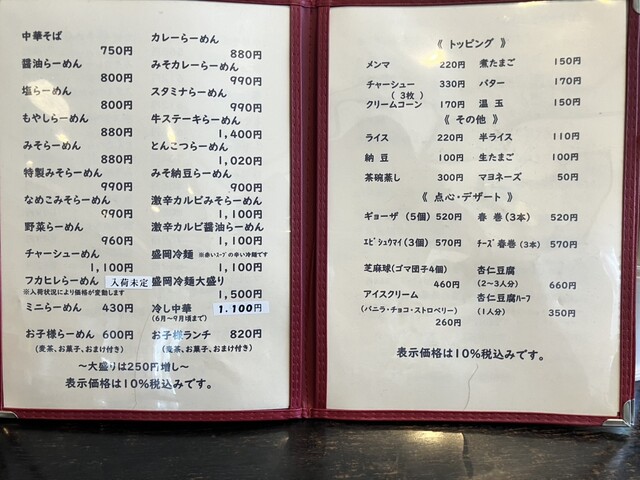 中華そば
750円
醤油らーめん
800円
塩らーめん
800円
もやしらーめん
880円
みそらーめん
880円
特製みそらーめん
990円
なめこみそらーめん
990円
野菜らーめん
960円
チャーシューめん
1,100円
フカヒレらーめん 入荷未定
※入荷状況により価格が変動します
ミニらーめん 430円
お子様らーめん 600円
(麦茶、お菓子、おまけ付き)
カレーらーめん
880円
みそカレーらーめん
990円
スタミナらーめん
990円
牛ステーキらーめん
1,400円
とんこつらーめん
1,020円
みそ納豆らーめん
900円
激辛カルビみそらーめん
1,100円
激辛カルビ醤油らーめん
1,100円
盛岡冷麺 ※赤いスープの辛い冷麺です
1,100円
盛岡冷麺大盛り
1,500円
冷し中華 1.100円
(6月~9月頃まで)
お子様ランチ 820円
(麦茶、お菓子、おまけ付き)
~大盛りは250円増し~
表示価格は10%税込みです。
《 トッピング 》
メンマ 220円 煮たまご 150円
チャーシュー 330円 バター 170円
( 3枚 )
クリームコーン 170円 温 玉 150円
《 その他 》
ライス 220円 半ライス 110円
納 豆 100円 生たまご 100円
茶碗蒸し 300円 マヨネーズ 50円
《 点心・デザート 》
ギョーザ (5個) 520円 春 巻 (3本) 520円
エビシュウマイ (3個) 570円 チーズ 春巻 (3本) 570円
芝麻球(ゴマ団子4個) 杏仁豆腐
460円 (2~3人分) 660円
アイスクリーム 杏仁豆腐ハーフ
(バニラ・チョコ・ストロベリー) (1人分) 350円
260円
表示価格は10%税込みです。